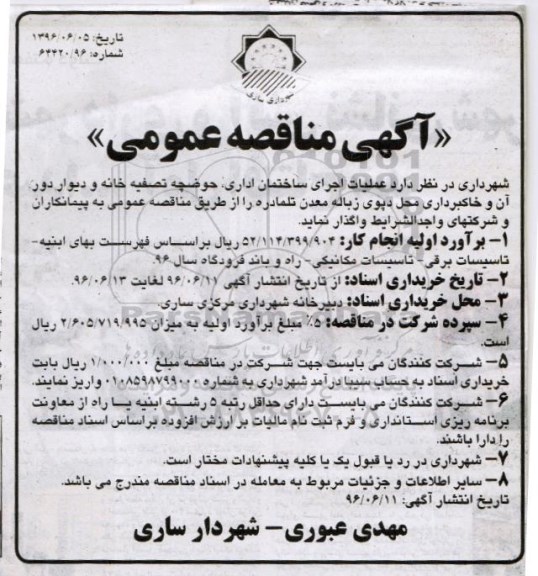 تاریخ: ۱۳۹۶/۰۶/۰۵
شماره: ۶۴۴۲۰/۹۶
شهرداری ساری
«آگهی مناقصه عمومی»
شهرداری در نظر دارد عملیات اجرای ساختمان اداری، حوضچه تصفیه خانه و دیوار دور
آن و خاکبرداری محل دپوی زباله معدن تلمادره را از طریق مناقصه عمومی به پیمانکاران
و شرکتهای واجدالشرایط واگذار نماید.
۱- برآورد اولیه انجام کار: ۵۲/۱۱۴/۳۹۹/۹۰۴ ریال براساس فهرست بهای ابنیه-
تاسیسات برقی- تاسیسات مکانیکی- راه و باند فرودگاه سال ۹۶.
۲- تاریخ خریداری اسناد: از تاریخ انتشار آگهی ۹۶/۰۶/۱۱ لغایت ۹۶/۰۶/۱۳.
۳- محل خریداری اسناد: دبیرخانه شهرداری مرکزی ساری.
۴- سپرده شرکت در مناقصه: ۵٪ مبلغ برآورد اولیه به میزان ۲/۶۰۵/۷۱۹/۹۹۵ ریال
است.
۵- شرکت کنندگان می بایست جهت شرکت در مناقصه مبلغ ۱/۰۰۰/۰۰۰ ریال بابت
خریداری اسناد به حساب سیبا درآمد شهرداری به شماره ۰۱۰۸۵۹۸۷۹۹۰۰۰ واریز نمایند.
۶- شرکت کنندگان می بایست دارای حداقل رتبه ۵ رشته ابنیه یا راه از معاونت
برنامه ریزی استانداری و فرم ثبت نام مالیات بر ارزش افزوده براساس اسناد مناقصه
را دارا باشند.
۷- شهرداری در رد یا قبول یک یا کلیه پیشنهادات مختار است.
۸- سایر اطلاعات و جزئیات مربوط به معامله در اسناد مناقصه مندرج می باشد.
تاریخ انتشار آگهی: ۹۶/۰۶/۱۱
مهدی عبوری- شهردار ساری